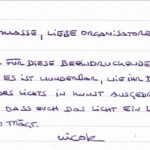 KLASSE, LIEBE ORGANISATORE
FÜR DIESE BEEINDRUCKENDE
ES IST WUNDERBAR, WIE IHR D
DES LICHTS IN KUNST AUSGEDR
DASS EUCH DAS LICHT EIN L
TRÄGT.
NICOLE